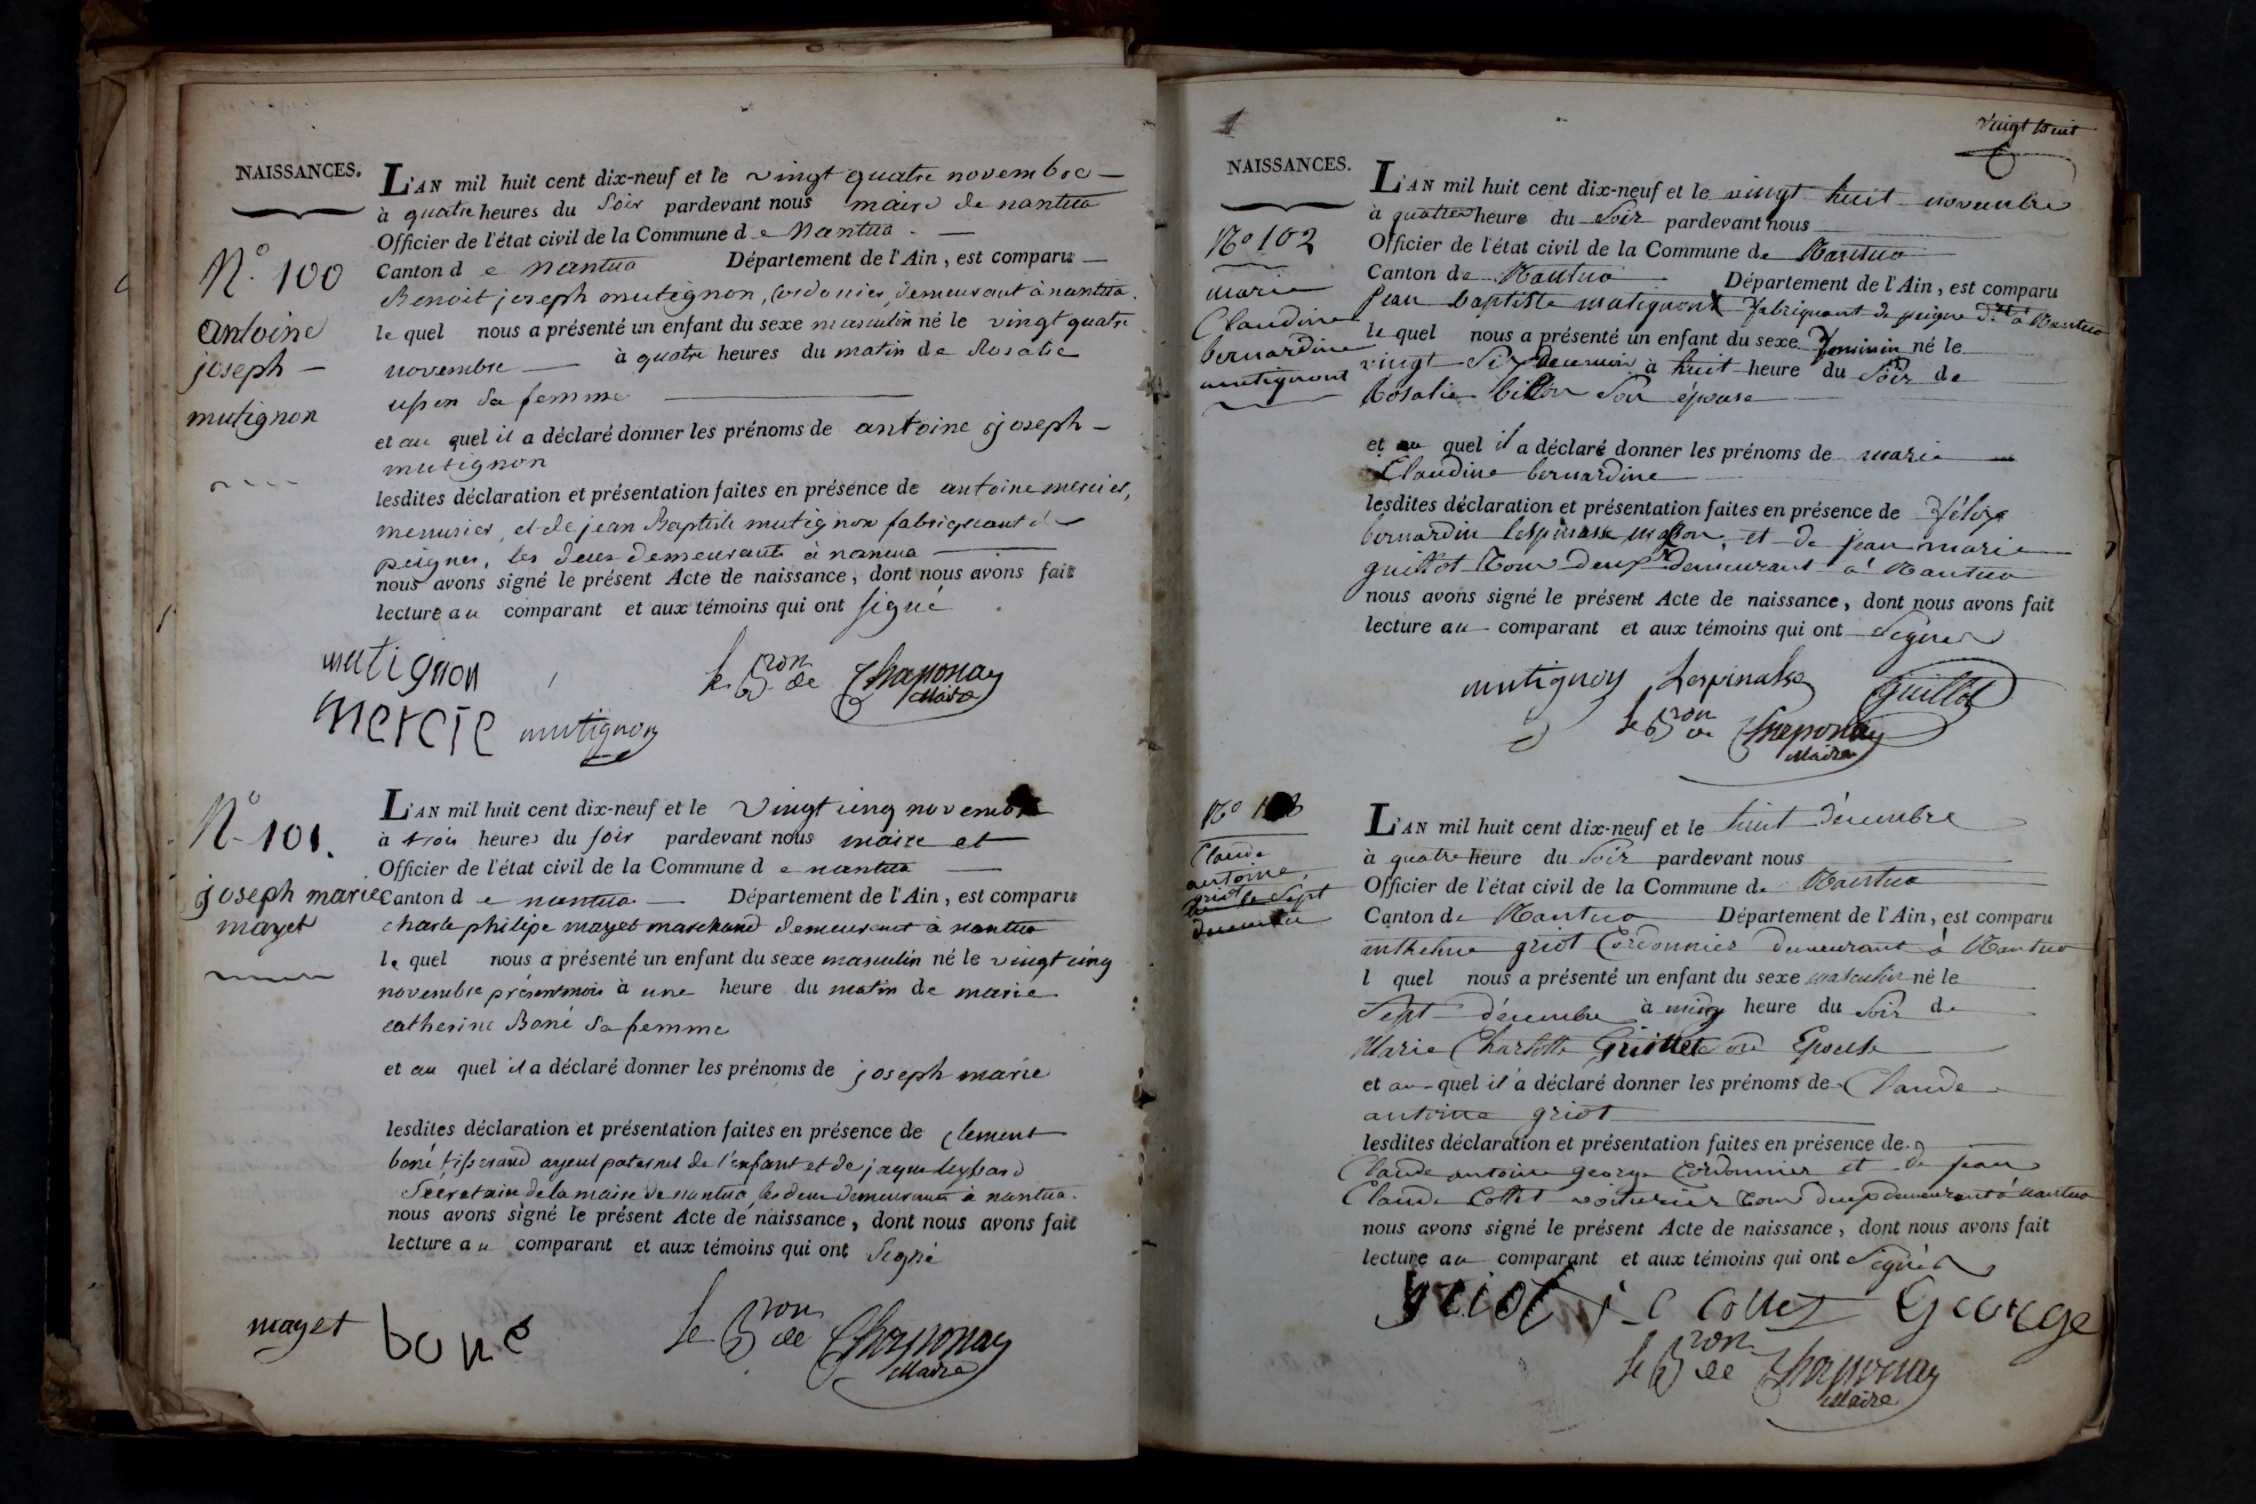 NAISSANCES.
N.° 100
antoine
joseph —
mutignon
L'AN mil huit cent dix-neuf et le vingt quatre novembre —
à quatre heures du soir pardevant nous maire de nantua
Officier de l'état civil de la Commune de Nantua. —
Canton de nantua Département de l'Ain, est comparu —
Benoit joseph mutignon, Cordonier, demeurant à nantua.
le quel nous a présenté un enfant du sexe masculin né le vingt quatre
novembre — à quatre heures du matin de Rosalie
sa femme
et au quel il a déclaré donner les prénoms de antoine joseph —
mutignon
lesdites déclaration et présentation faites en présence de antoine mercier,
menusier, et de jean Baptiste mutignon fabriquant de
peignes, les deux demeurants à nantua
nous avons signé le présent Acte de naissance, dont nous avons fait
lecture au comparant et aux témoins qui ont signé
mutignon
le Bron de Chaponay
Maire
mercie mutignon
N° 101.
joseph marie
mayet
L'AN mil huit cent dix-neuf et le vingt cinq novembre
à trois heures du soir pardevant nous maire et
Officier de l'état civil de la Commune de nantua —
Canton de nantua — Département de l'Ain, est comparu
charle philipe mayet marchand demeurant à nantua
le quel nous a présenté un enfant du sexe masculin né le vingt cinq
novembre présent mois à une heure du matin de marie
catherine Boné sa femme
et au quel il a déclaré donner les prénoms de joseph marie
lesdites déclaration et présentation faites en présence de clement
boné tisserand ayeul paternel de l'enfant et de jaque
Secretaire de la mairie de nantua, les deux demeurants à nantua.
nous avons signé le présent Acte de naissance, dont nous avons fait
lecture au comparant et aux témoins qui ont signé
mayet boné le Bron de Chaponay
Maire
vingt huit
NAISSANCES.
N° 102
marie
Claudine
bernardine
mutignont
L'AN mil huit cent dix-neuf et le vingt huit novembre
à quatre heure du Soir pardevant nous
Officier de l'état civil de la Commune de Nantua
Canton de Nantua Département de l'Ain, est comparu
Jean baptiste mutignont fabriquant de peigne d.nt à Nantua
le quel nous a présenté un enfant du sexe feminin né le
vingt Six à huit heure du Soir de
Rosalie Son épouse
et au quel il a déclaré donner les prénoms de marie —
Claudine bernardine
lesdites déclaration et présentation faites en présence de
bernardin lespinasse maçon, et de jean marie
guillot tous deux demeurant à Nantua
nous avons signé le présent Acte de naissance, dont nous avons fait
lecture au comparant et aux témoins qui ont Signer
mutignon Lespinasse Guillot
le Bron de Chaponay
Maire
N° 103
Claude
antoine,
griot
le Sept
decembre
L'AN mil huit cent dix-neuf et le huit décembre
à quatre heure du Soir pardevant nous
Officier de l'état civil de la Commune de Nantua
Canton de Nantua Département de l'Ain, est comparu
anthelme griot Cordonnier demeurant à Nantua
l quel nous a présenté un enfant du sexe masculin né le
Sept décembre à heure du Soir de
Marie Charlotte Epouse
et au quel il a déclaré donner les prénoms de Claude
antoine griot
lesdites déclaration et présentation faites en présence de
Claude antoine george Cordonnier et de jean
Claude Collet voiturier tous deux demeurant à nantua
nous avons signé le présent Acte de naissance, dont nous avons fait
lecture au comparant et aux témoins qui ont Signer
griot j C Collet George
le Bron de Chaponay
Maire